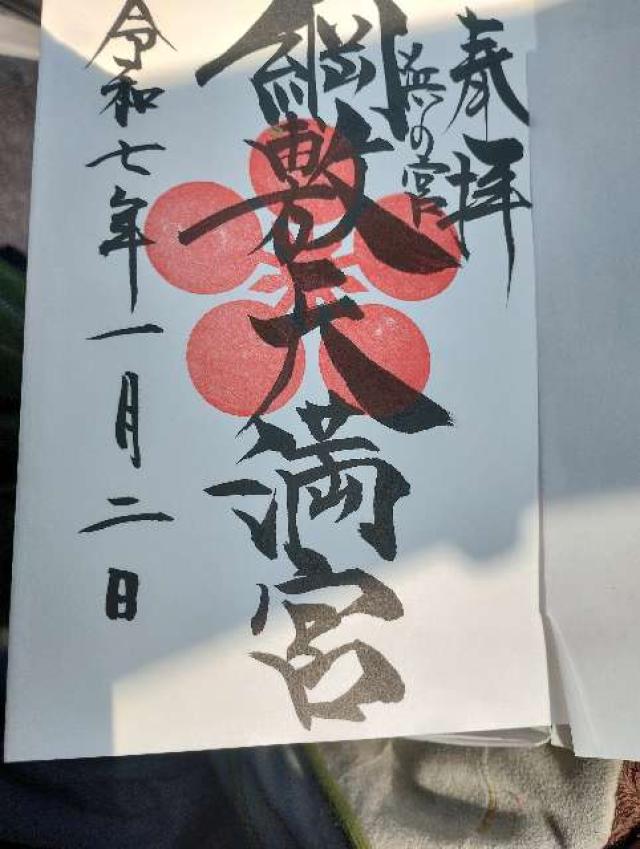 奉拝
浜の宮
綱敷天満宮
令和七年一月二日